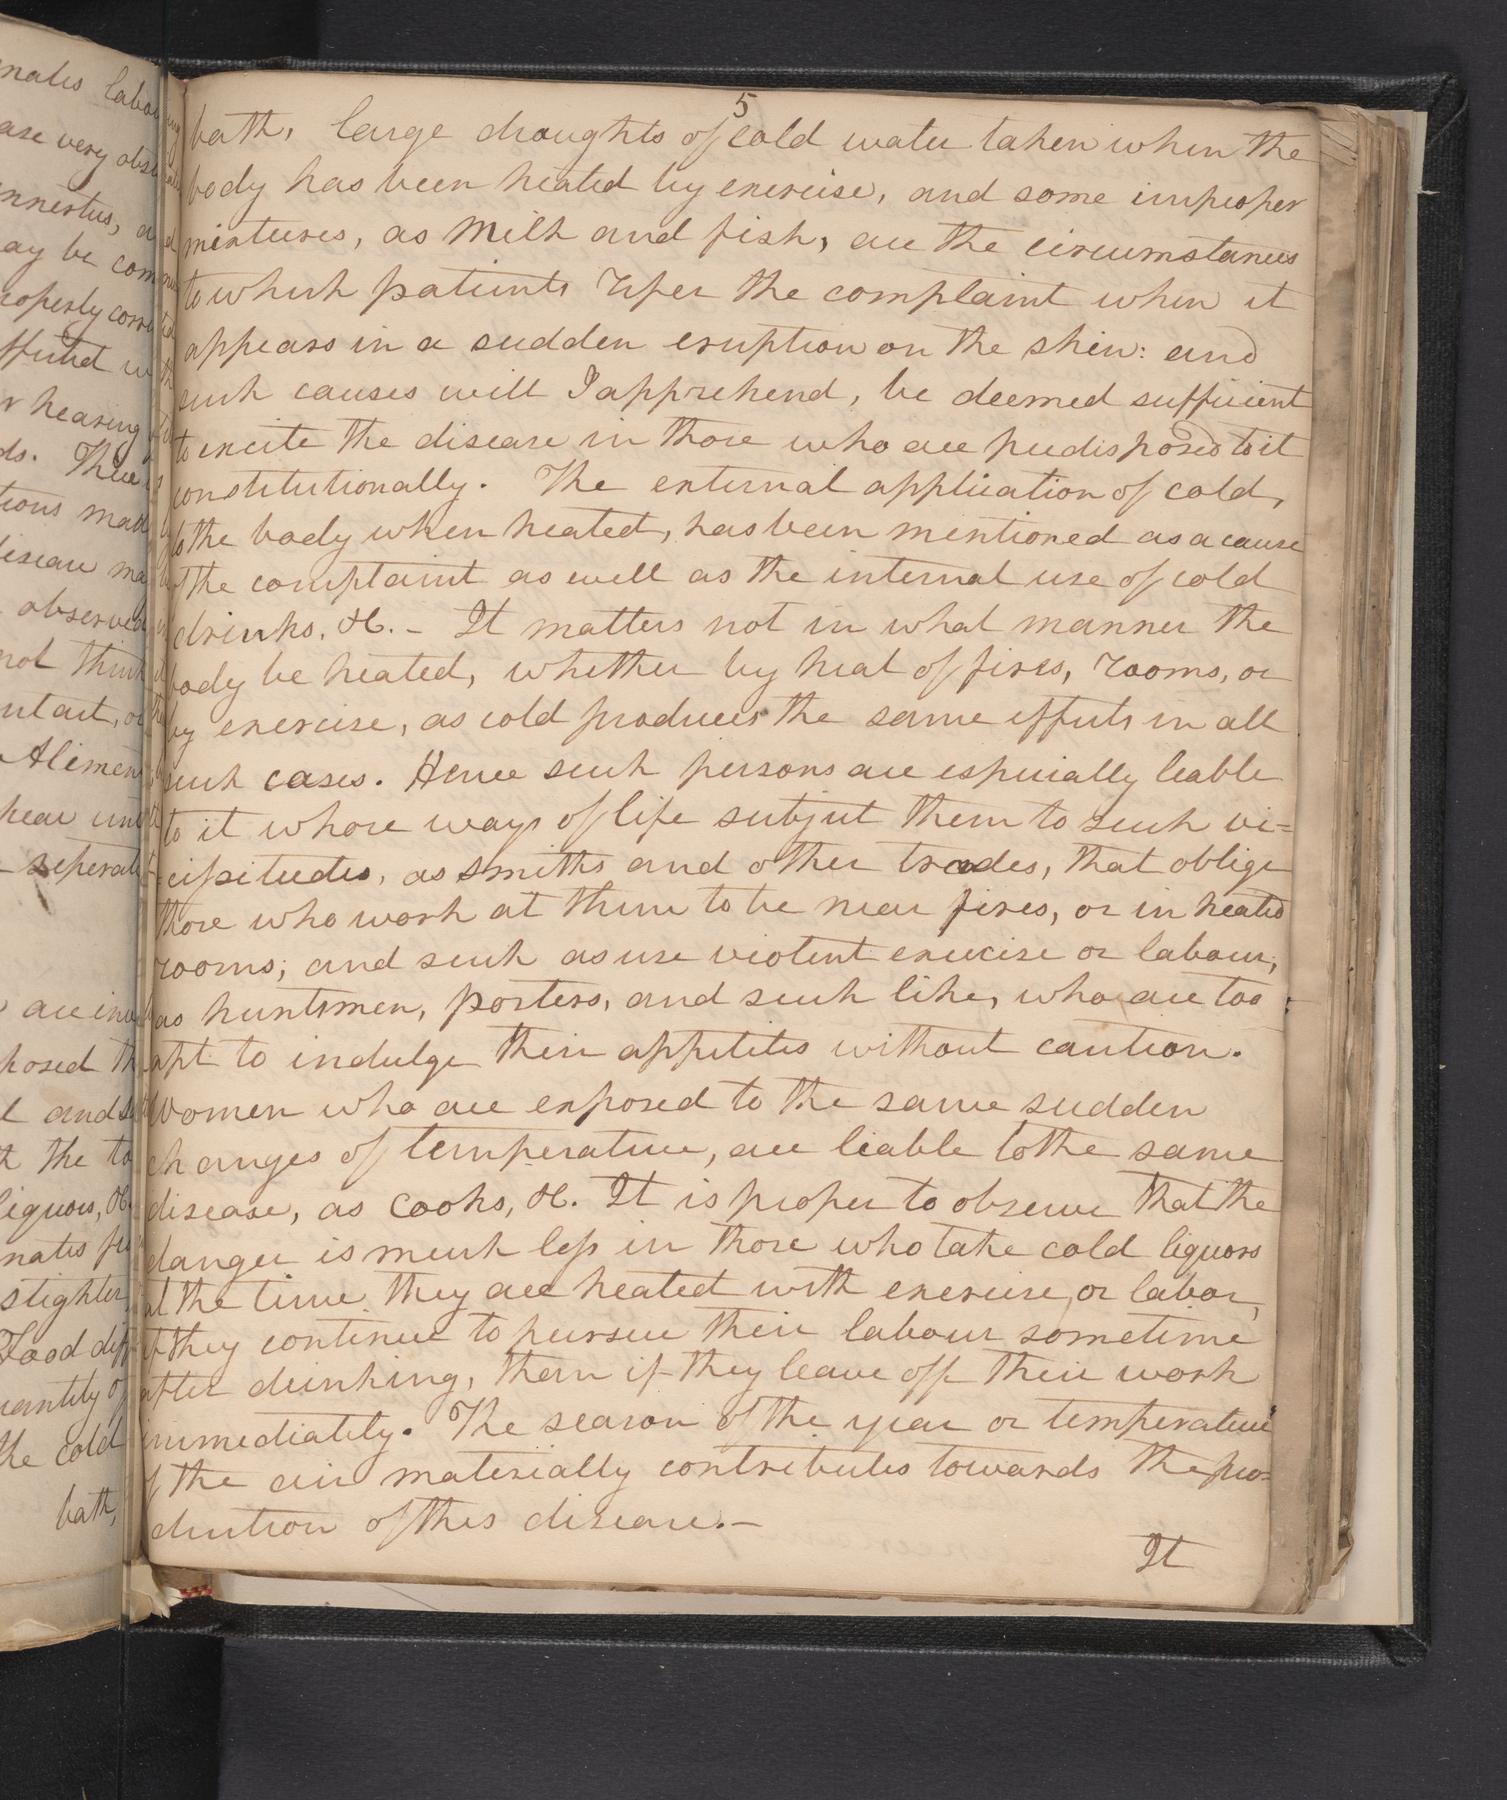 nales labo
are very obs
nnertus, a
ay be com
roperly corr
ffected w
r hearing
ds. These
tions mad
disease ma
observed
not think
ntact, o
Alimen
hear un
seperate
are in
posed th
l and s
k the to
liquors, &c
nates fr
slighter
Food diff
uantity of
the cold
bath,
5
bath, large draughts of cold water taken when the
body has been heated by exercise, and some improper
mixtures, as Milk and fish, are the circumstances
to which patients refer the complaint when it
appears in a sudden eruption on the skin: and
such causes will I apprehend, be deemed sufficient
to excite the disease in those who are predisposed to it
constitutionally. The external application of cold,
to the body when heated, has been mentioned as a cause
of the complaint as well as the internal use of cold
drinks, &c. - It matters not in what manner the
body be heated, whether by heat of fires, rooms, or
by exercise, as cold produces the same effects in all
such cases. Hence such persons are especially leable
to it whose ways of life subject them to such vi=
=cissitudes, as smiths and other trades, that oblige
those who work at them to be near fires, or in heated
rooms; and such as use violent exercise or labour,
as huntsmen, porters, and such like, who are too
apt to indulge their appetites without caution.
Women who are exposed to the same sudden
changes of temperature, are leable to the same
disease, as cooks, &c. It is proper to observe that the
danger is much less in those who take cold liquors
at the time they are heated with exercise, or labor,
if they continue to pursue their labour sometime
after drinking, than if they leave off their work
immediately. The season of the year or temperature
of the air materially contributes towards the pro=
duction of this disease.-
It